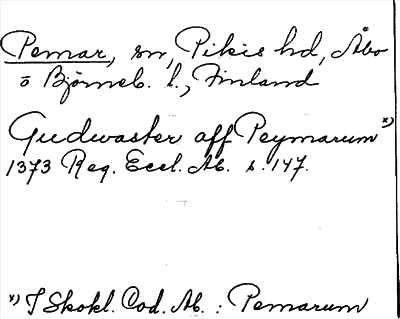 Pemar, sn, Pikis hd, Åbo
o Björneb. l., Finland
Gudwaster aff Peymarum x)
1373 Reg. Eccl. Ab. s. 147.
x) I Skokl. Cod. Ab. : Pemarum